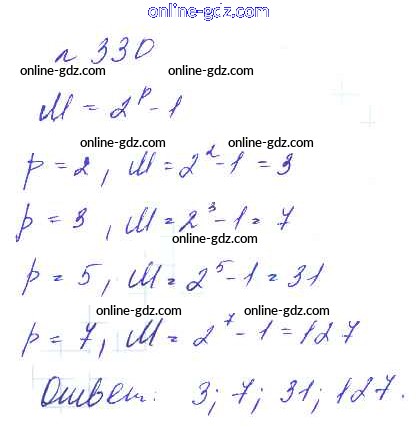 online-gdz.com
№ 330
online-gdz.com online-gdz.com
M = 2^p - 1
online-gdz.com
p = 2, M = 2^2 - 1 = 3
online-gdz.com
p = 3, M = 2^3 - 1 = 7
online-gdz.com
p = 5, M = 2^5 - 1 = 31
online-gdz.com
p = 7, M = 2^7 - 1 = 127
online-gdz.com
Ответ: 3; 7; 31; 127.